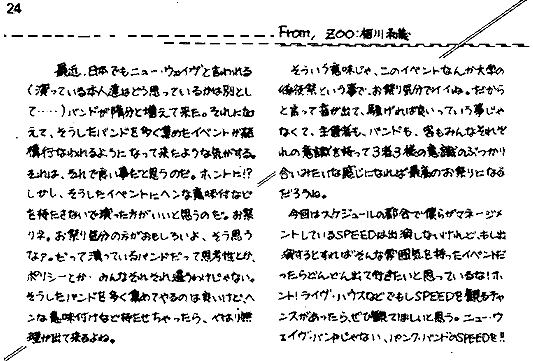 24
From, ZOO:相川和義
最近、日本でもニュー・ウェイヴと言われる
(演っている本人達はどう思っているかは別とし
て‥‥)バンドが随分と増えて来た。それに加
えて、そうしたバンドを多く集めたイベントが結
構行なわれるようになって来たような気がする。
それは、それで良い事だと思うのだ。ホントに!?
しかし、そうしたイベントにヘンな意味付など
を持たさないで演った方がいいと思うのだ。お祭
りネ。お祭り気分の方がおもしろいよ、そう思う
なァ。だって演っているバンドだって思考性とか、
ポリシーとか、みんなそれぞれ違うわけじゃない。
そうしたバンドを多く集めてやるのは良いけど、ヘ
ンな意味付けなど持たせちゃったら、やはり無
理が出て来るよね。
そういう意味じゃ、このイベントなんか大学の
後夜祭という事で、お祭り気分でイイね。だから
と言って音が出て、騒げれば良いっていう事じゃ
なくて、主催者も、バンドも、客もみんなそれぞ
れの意識を持って3者3様の意識のぶつかり
合いみたいな感じになれば最高のお祭りになる
だろうね。
今回はスケジュールの都合で僕らがマネージメ
ントしているSPEEDは出演しないけれど、もし出
演するとすればそんな雰囲気を持ったイベントだ
ったらどんどん出て行きたいと思っているな!ホ
ント!ライヴ・ハウスなどでもしSPEEDを観るチャ
ンスがあったら、ぜひ観てほしいと思う。ニュー・ウ
ェイヴ・バンドじゃない、パンク・バンドのSPEEDを!!